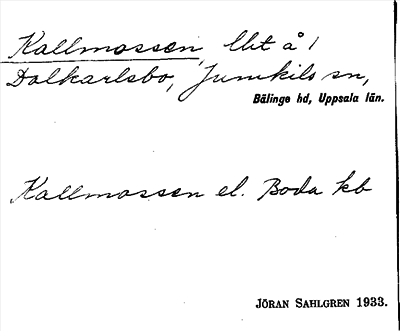 Kallmossen, lht å /
Dalkarlsbo, Jumkils sn,
Bälinge hd, Uppsala län.
Kallmossen el. Boda kb
JÖRAN SAHLGREN 1933.